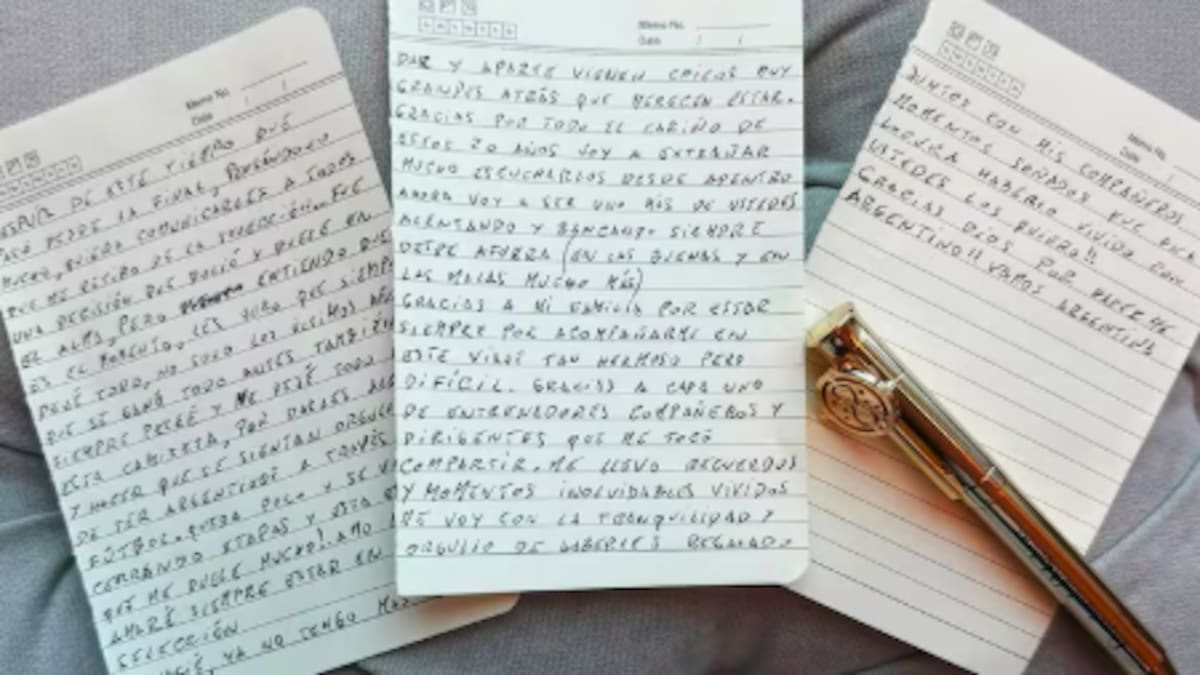 Memo No.
Date / /
DE ESTE TIEMPO QUE
DESDE LA FINAL, PENSÁNDOLO
MUCHO, QUIERO COMUNICARLES A TODOS
QUE ME RETIRO DE LA SELECCIÓN. FUE
UNA DECISIÓN QUE DOLIÓ Y DUELE EN
EL ALMA, PERO ENTIENDO QUE
ES EL MOMENTO, LES JURO QUE SIEMPRE
DEJÉ TODO, NO SOLO LOS ÚLTIMOS
QUE SE GANÓ TODO ANTES TAMBIÉN
SIEMPRE PELEÉ Y ME DEJÉ TODO
ESTA CAMISETA, POR DARLES
Y HACER QUE SE SIENTAN
DE SER ARGENTINOS A TRAVÉS
FÚTBOL. QUEDA POCO Y SE
CERRANDO ETAPAS Y ESTA
QUE ME DUELE MUCHO! AMO
AMARÉ SIEMPRE ESTAR EN
SELECCIÓN
YA NO TENGO
Memo No.
Date / /
DAR Y APARTE VIENEN CHICOS MUY
GRANDES ATRÁS QUE MERECEN ESTAR.
GRACIAS POR TODO EL CARIÑO DE
ESTOS 20 AÑOS VOY A EXTRAÑAR
MUCHO ESCUCHARLOS DESDE ADENTRO
AHORA VOY A SER UNO MÁS DE USTEDES
ALENTANDO Y BANCANDO SIEMPRE
DESDE AFUERA (EN LAS BUENAS Y EN
LAS MALAS MUCHO MÁS)
GRACIAS A MI FAMILIA POR ESTAR
SIEMPRE POR ACOMPAÑARME EN
ESTE VIAJE TAN HERMOSO PERO
DIFÍCIL. GRACIAS A CADA UNO
DE ENTRENADORES COMPAÑEROS Y
DIRIGENTES QUE ME TOCÓ
COMPARTIR. ME LLEVO RECUERDOS
Y MOMENTOS INOLVIDABLES VIVIDOS
ME VOY CON LA TRANQUILIDAD Y
ORGULLO DE HABERLES REGALADO
Memo No.
Date /
JUNTOS CON MIS COMPAÑEROS
MOMENTOS SOÑADOS QUE
LOCURA HABERLO VIVIDO CON
USTEDES LOS QUIERO!!
GRACIAS DIOS POR HACERME
ARGENTINO!! VAMOS ARGENTINA